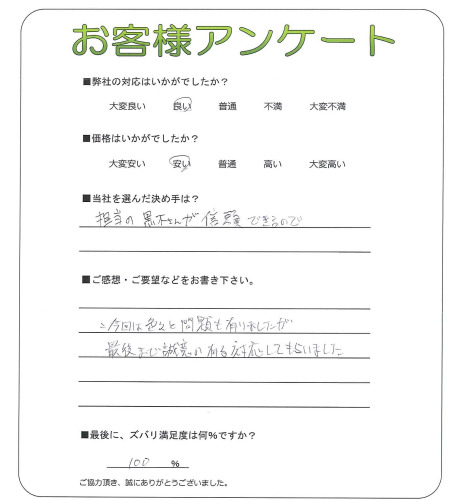 お客様アンケート
■弊社の対応はいかがでしたか？
大変良い 良い 普通 不満 大変不満
■価格はいかがでしたか？
大変安い 安い 普通 高い 大変高い
■当社を選んだ決め手は？
担当の黒木さんが信頼できるので
■ご感想・ご要望などをお書き下さい。
今回は色々と問題も有りましたが
最後まで誠意の有る対応してもらいました
■最後に、ズバリ満足度は何%ですか？
100 %
ご協力頂き、誠にありがとうございました。